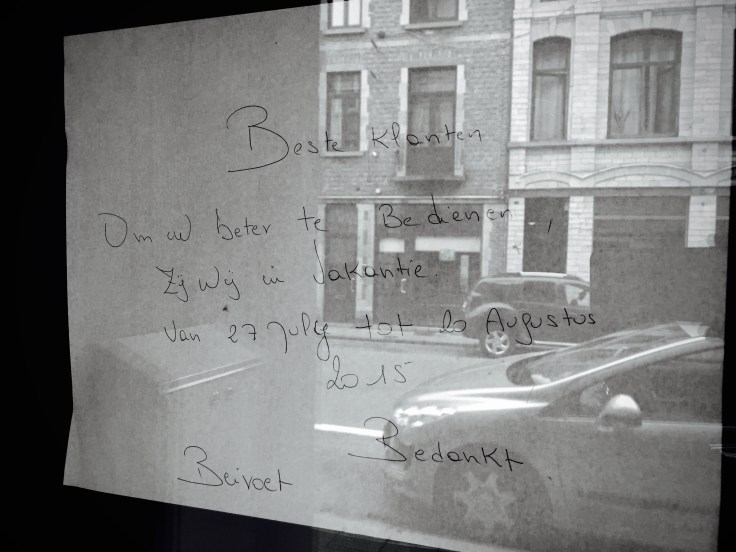 Beste Klanten
Om uw beter te Bedienen,
Zij Wij in Vakantie.
Van 27 July tot 20 Augustus
2015
Bedankt
Beivoet